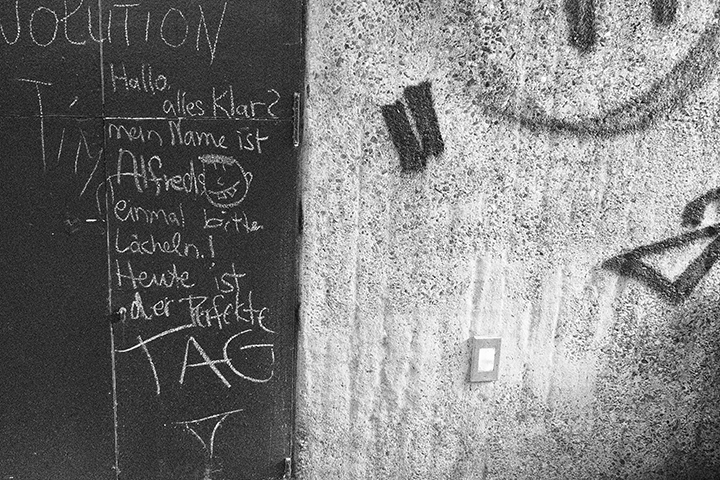 VOLUTION
Hallo,
alles Klar?
mein Name ist
Alfred
einmal bitte
Lächeln!
Heute ist
der Perfekte
TAG
Tim